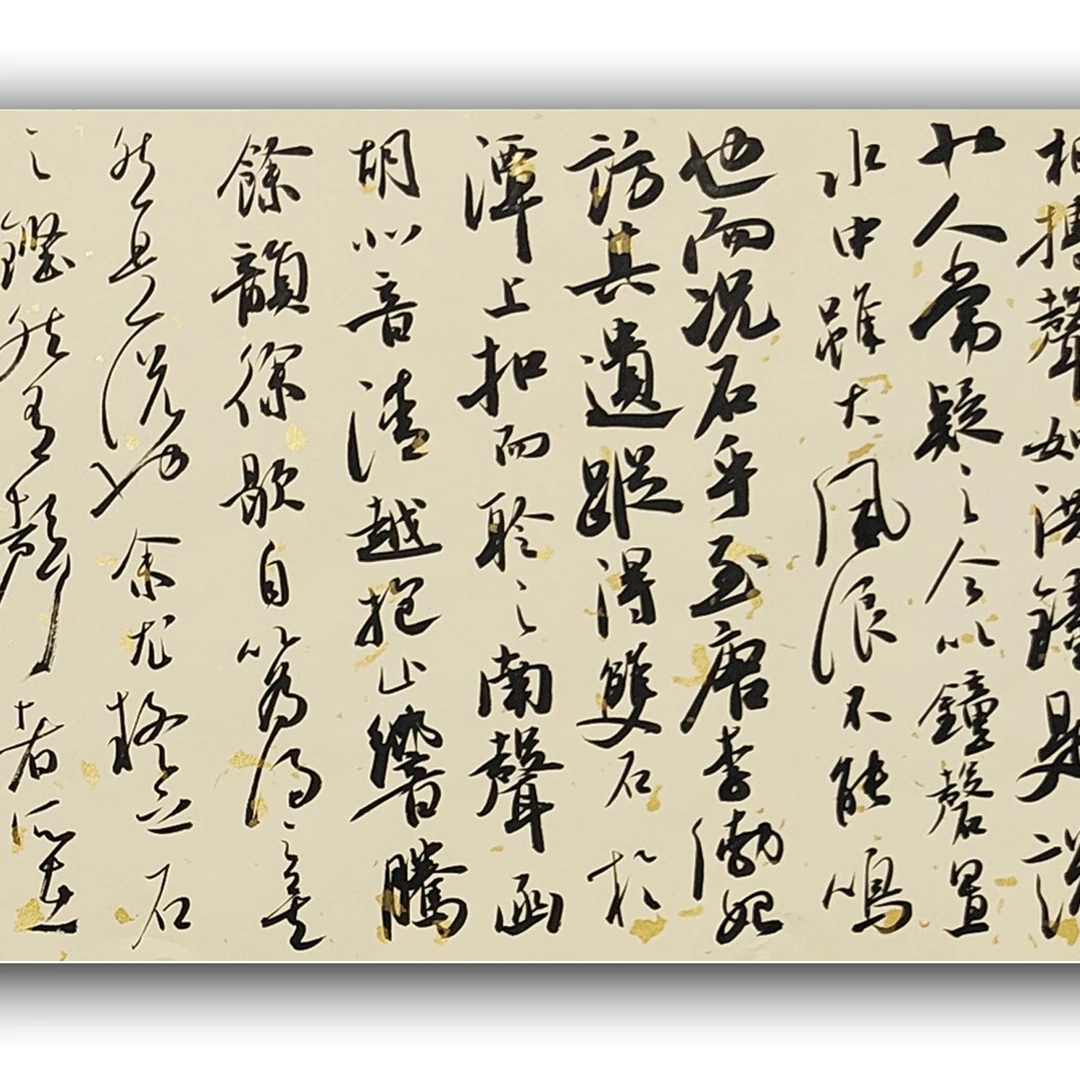 相搏聲如洪鐘是說
也人常疑之今以鐘磬置
水中雖大風浪不能鳴
也而況石乎至唐李渤始
訪其遺蹤得雙石於
潭上扣而聆之南聲函
胡北音清越抱止響騰
餘韻徐歇自以為得之矣
然是說也余尤疑之石
之鏗然有聲者所在